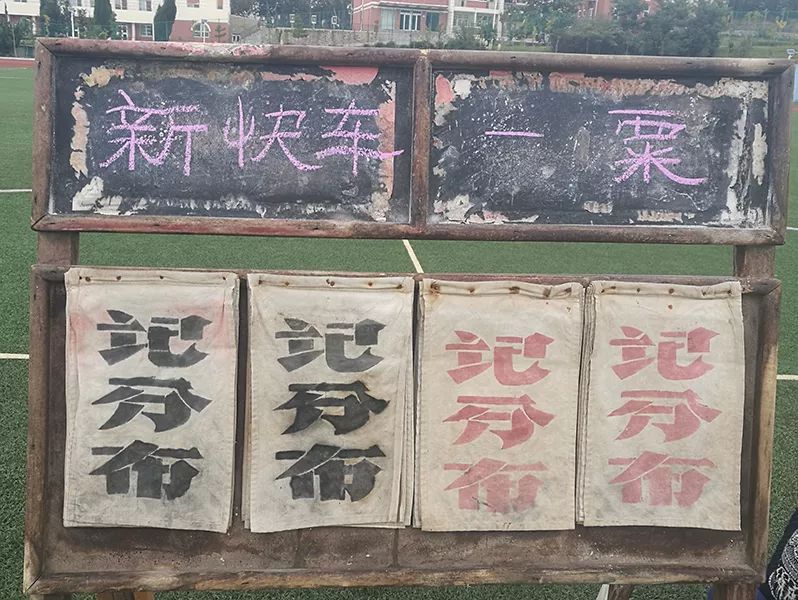 新快车 一粟
记分布 记分布 记分布 记分布